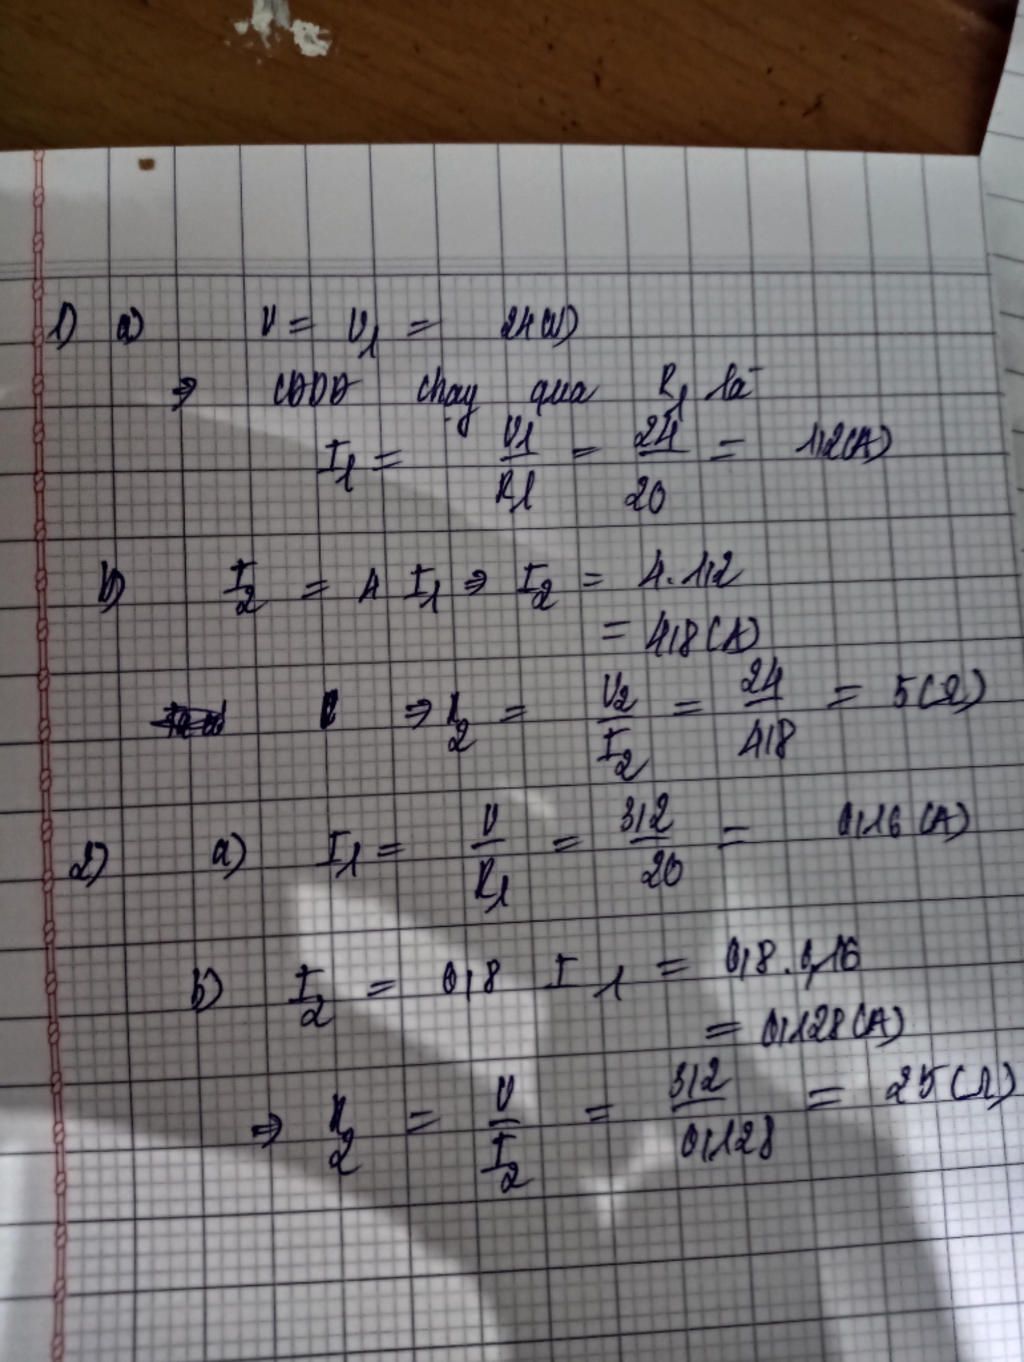 1) a) U = U1 = 24(V)
⇒ CĐDĐ chạy qua R1 là
I1 = U1/R1 = 24/20 = 1,2(A)
b) I2 = 4 I1 ⇒ I2 = 4.1,2
= 4,8(A)
⇒ R2 = U2/I2 = 24/4,8 = 5(Ω)
2) a) I1 = U/R1 = 3,2/20 = 0,16(A)
b) I2 = 0,8 I1 = 0,8.0,16
= 0,128(A)
⇒ R2 = U/I2 = 3,2/0,128 = 25(Ω)